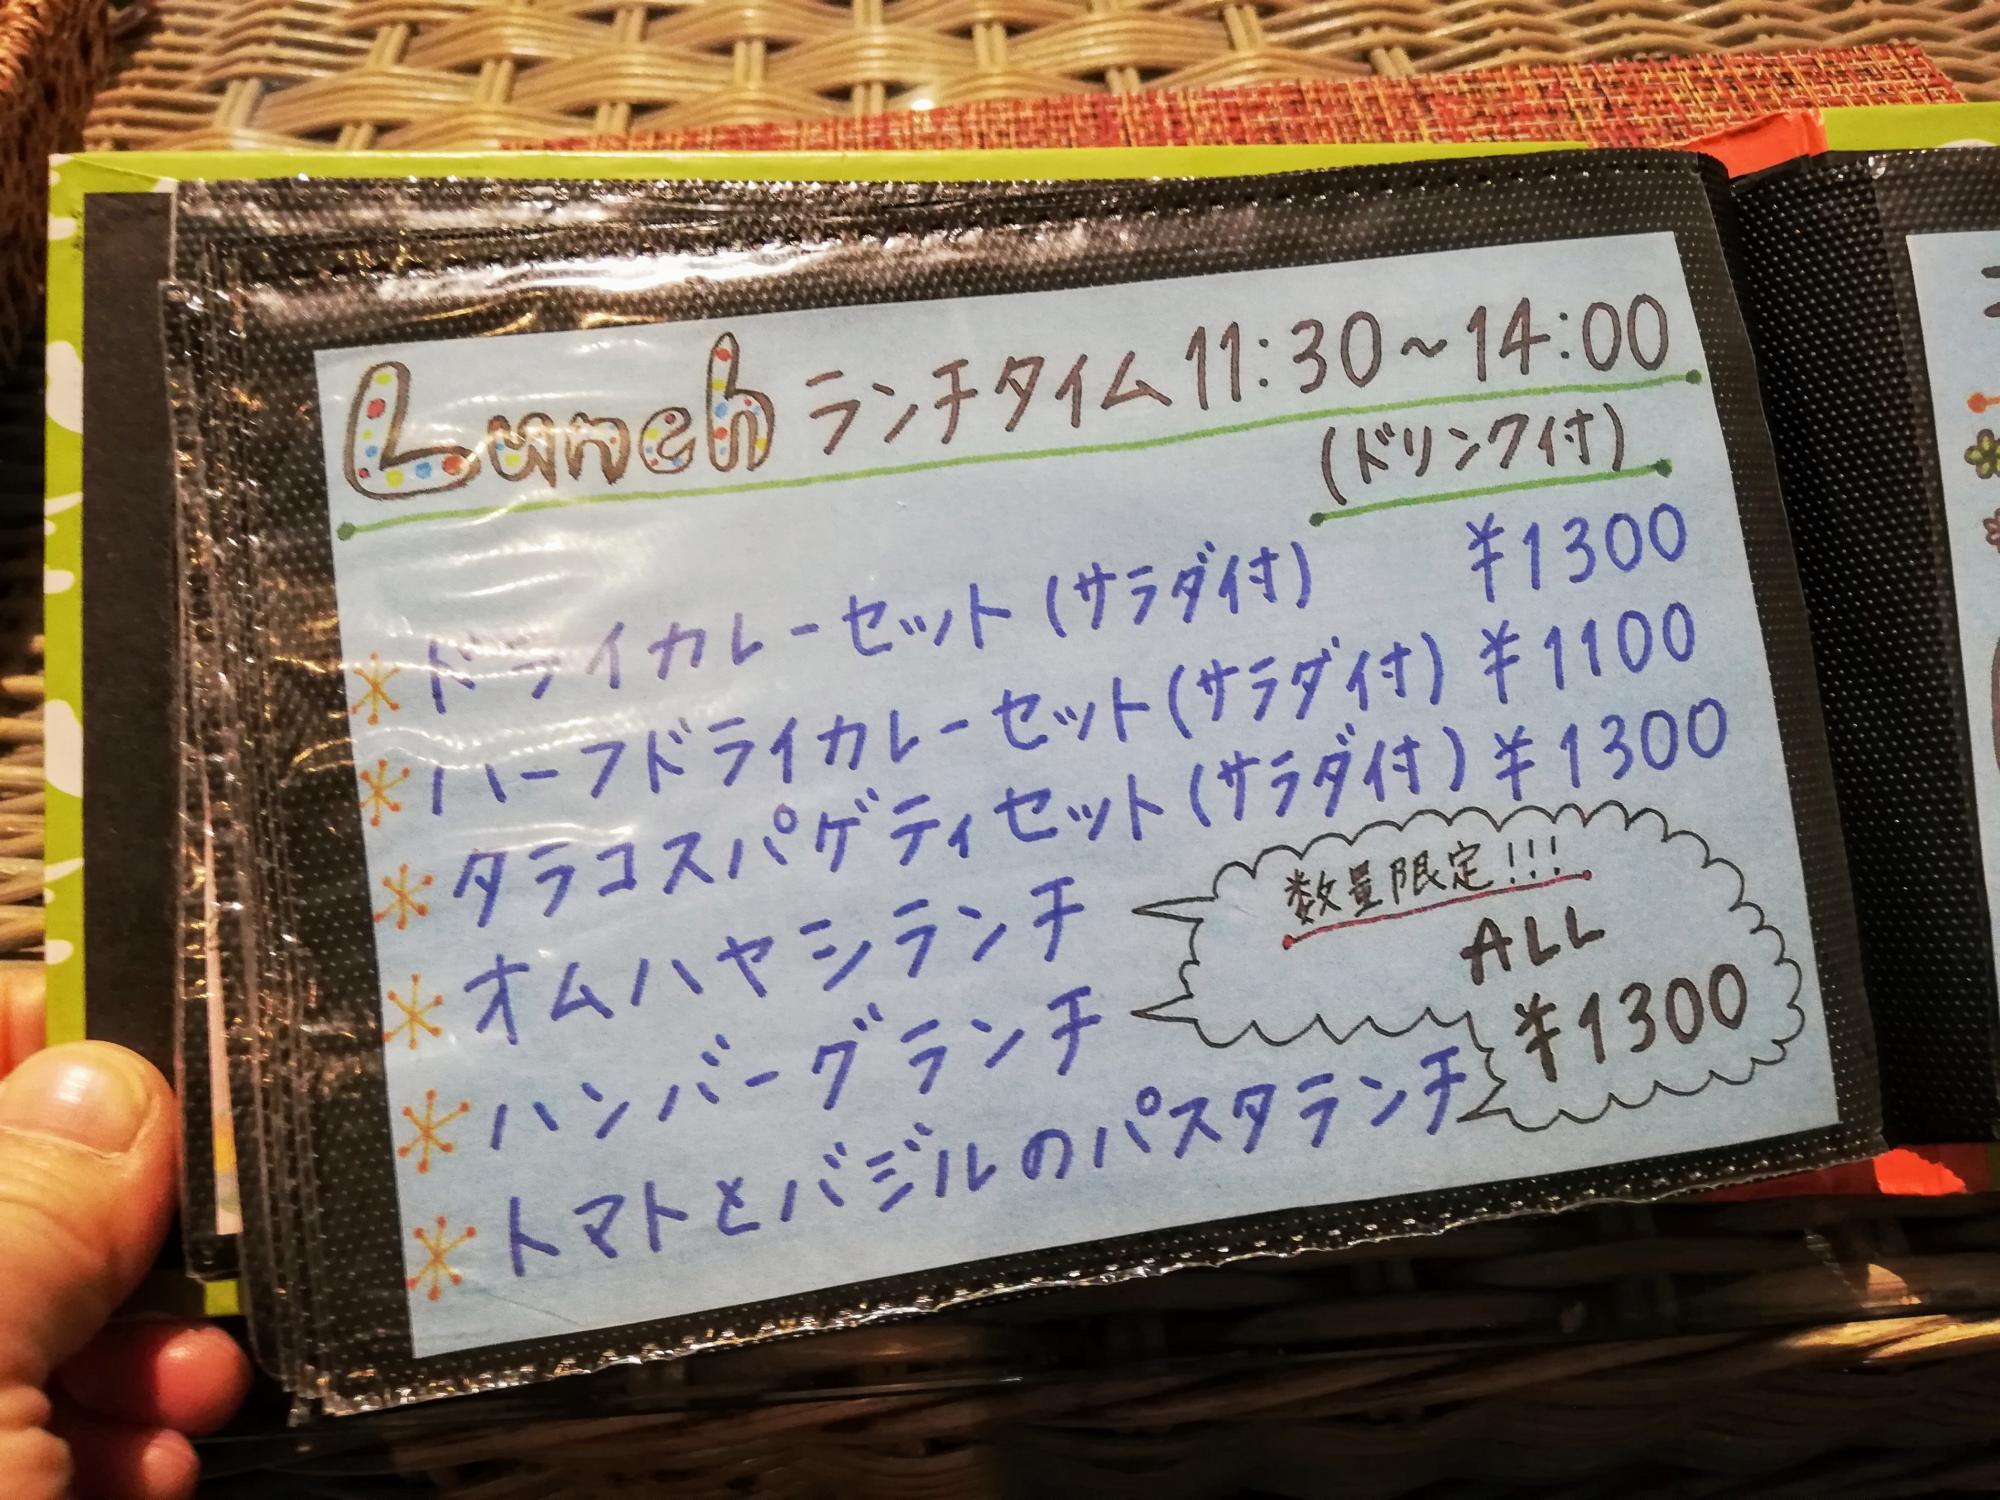 Lunch ランチタイム 11:30～14:00
(ドリンク付)
ドライカレーセット(サラダ付) ¥1300
ハーフドライカレーセット(サラダ付) ¥1100
タラコスパゲティセット(サラダ付) ¥1300
オムハヤシランチ
ハンバーグランチ
トマトとバジルのパスタランチ
数量限定!!!
ALL
¥1300